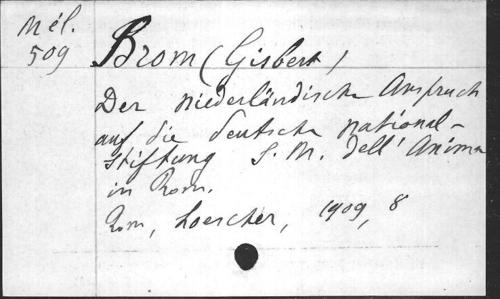 Mél.
509
Brom (Gisbert)
Der niederländische Anspruch
auf die deutsche National-
stiftung S. M. dell' Anima
in Rom.
Rom, Loescher, 1909, 8